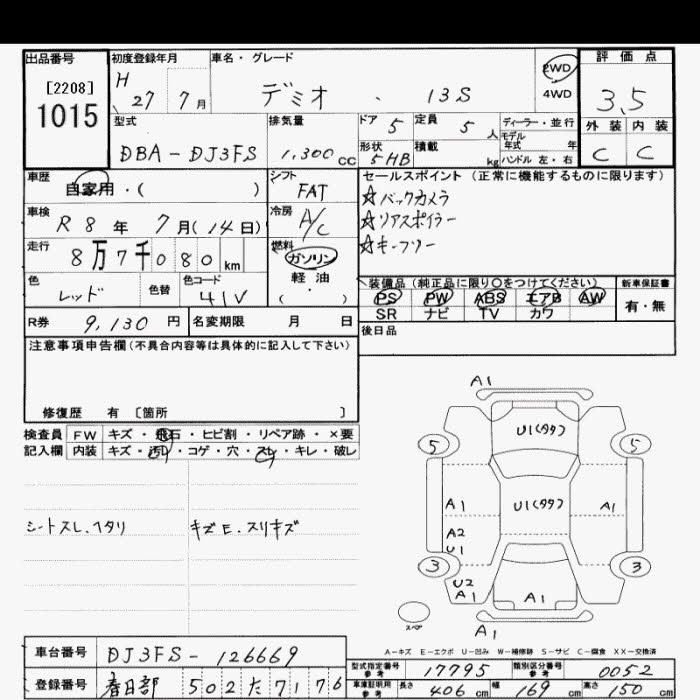 出品番号
[2208]
1015
初度登録年月
H 27 7月
車名・グレード
デミオ ・ 13S
2WD
4WD
評価点
3.5
外装 内装
C C
型式
DBA-DJ3FS
排気量
1,300 cc
ドア 5
形状 5HB
定員 5 人
積載 kg
ディーラー・並行
モデル年式 年
ハンドル 左・右
車歴
自家用・( )
シフト
FAT
車検
R8年 7月(14日)
冷房
A/C
走行
8万7千080km
燃料
ガソリン
軽油
( ・ )
色
レッド
色替
色コード
41V
R券 9,130 円
名変期限 月 日
セールスポイント (正常に機能するものに限ります)
☆バックカメラ
☆リアスポイラー
☆キーフリー
装備品 (純正品に限り〇をつけてください)
PS PW ABS エアB AW
SR ナビ TV カワ
新車保証書
有・無
後日品
注意事項申告欄(不具合内容等は具体的に記入して下さい)
修復歴 有 [箇所 ]
検査員記入欄
FW キズ・飛石・ヒビ割・リペア跡・×要
内装 キズ・汚れ・コゲ・穴・スレ・キレ・破レ
シートスレ.ヘタリ
キズE.スリキズ
A1
U1(タタ)
5 5
U1(タタ)
A1 A1
A2
U1
3 3
U2
A1 A1
スペア
A1
A-キズ E-エクボ U-凹み W-補修跡 S-サビ C-腐食 XX-交換済
車台番号 DJ3FS-126669
登録番号 春日部 502 た 7176
型式指定番号 参考 17795
類別区分番号 参考 0052
車庫証明用 参考 長さ 406 cm 幅 169 cm 高さ 150 cm